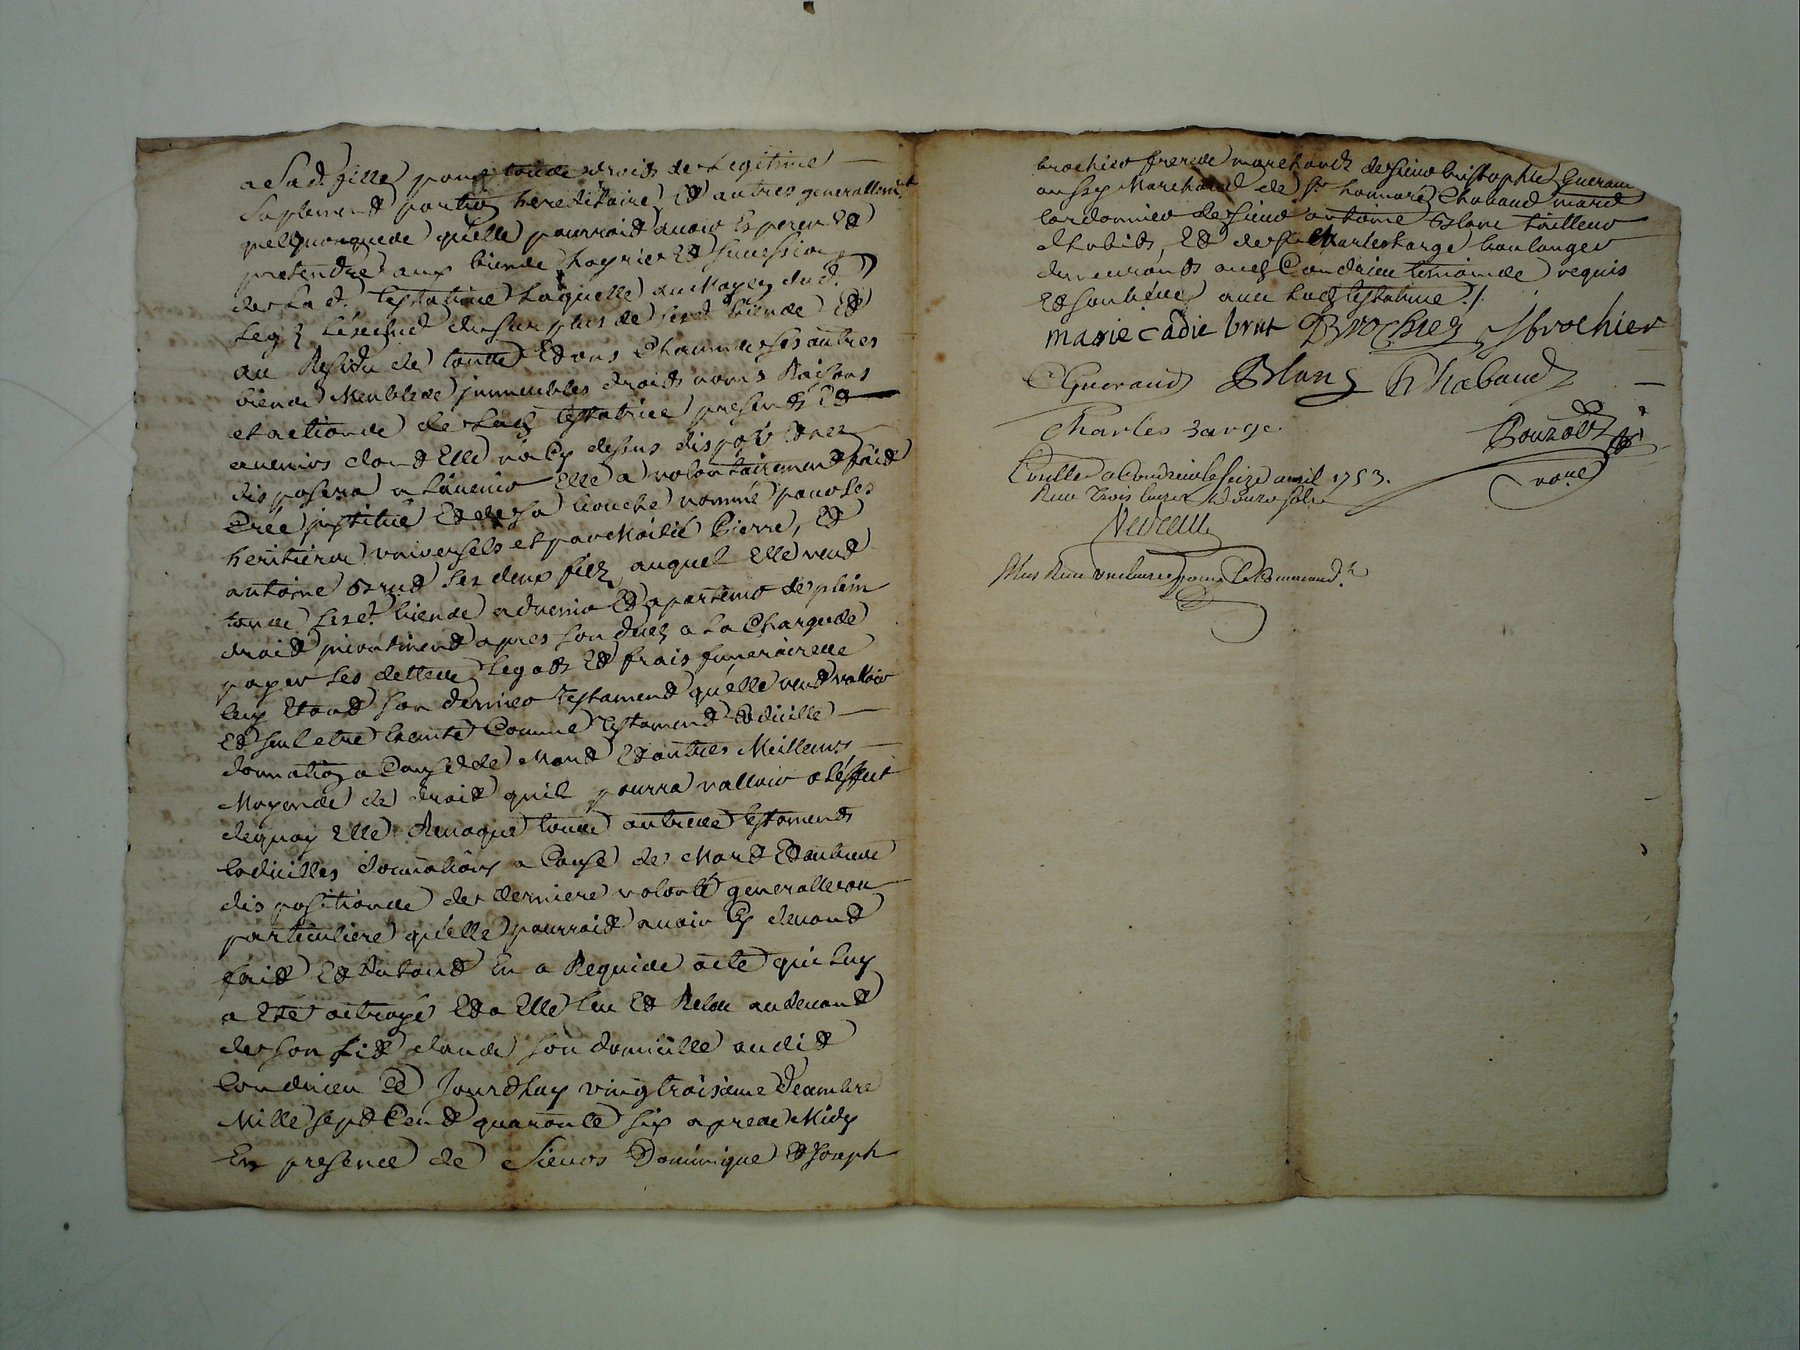 a sad. fille pour toude droits de Legitime
suplement portion hereditaire Et autres generallement
quelquonquede quelle pourroit avoir Esperer Et
pretendre aux biende hoyrie Et succession
de Lad. testatrice Laquelle au Moyen dud.
Leg
au Residu de toude Et uns Chacuns ses autres
biende Meublede immeubles droits noms Raisons
et actionde de Lad. testatrice presents Et
avenirs dont Elle n'a Cy dessus disposé
disposera a L'avenir Elle a volontairement fait
Créé institué Et de sa bouche nommé pour Ses
heritiers universels et par Moitié Pierre, Et
antoine brut Ses deux fils auquel Elle veut
toude Sesd. biende advenir Et apartenir de plein
droit incontinent apres son deces a La Chargede
payer Ses dettede Legats Et frais funerairede
Cecy Etant son dernier testament qu'elle veut valloir
Et sentence Comme testament Codicille
donnation a Cause de Mort Et autres Meilleurs
Moyende de droit quil pourra valloir a L'effect
dequoy Elle Revoque toude autrede testaments
Codicilles donnations a Cause de Mort Et autrede
dispositionde de derniere volonté generallede ou
particuliere qu'elle pourroit avoir Cy devant
fait Et
a Eté octroyé Et a Elle Leu Et Releu au devant
de son lit dande son domicille audit
Condrieu Ce Jourdhuy vingtroisieme decembre
Mille sept Cent quarante six aprede Midy
En presence de Sieurs Dominique Et Joseph
brochier frerede marchands de sieur Cristophle Gueraud
aussy Marchand de sr. honnoré Chabaud mard
Cordonnier de sieur antoine Blanc tailleur
d'habits, Et de sr Charles barge boulanger
demeurants aud Condrieu temoinde requis
Et soubsignes avec Lad testatrice ./.
marie cadie brut D Brochier J brochier
C Gueraud Blanc h Chabaud
Charles barge
Bouzod
no.re
Conllé a Condrieu le seize avril 1753.
Reçu trois livres douze sols